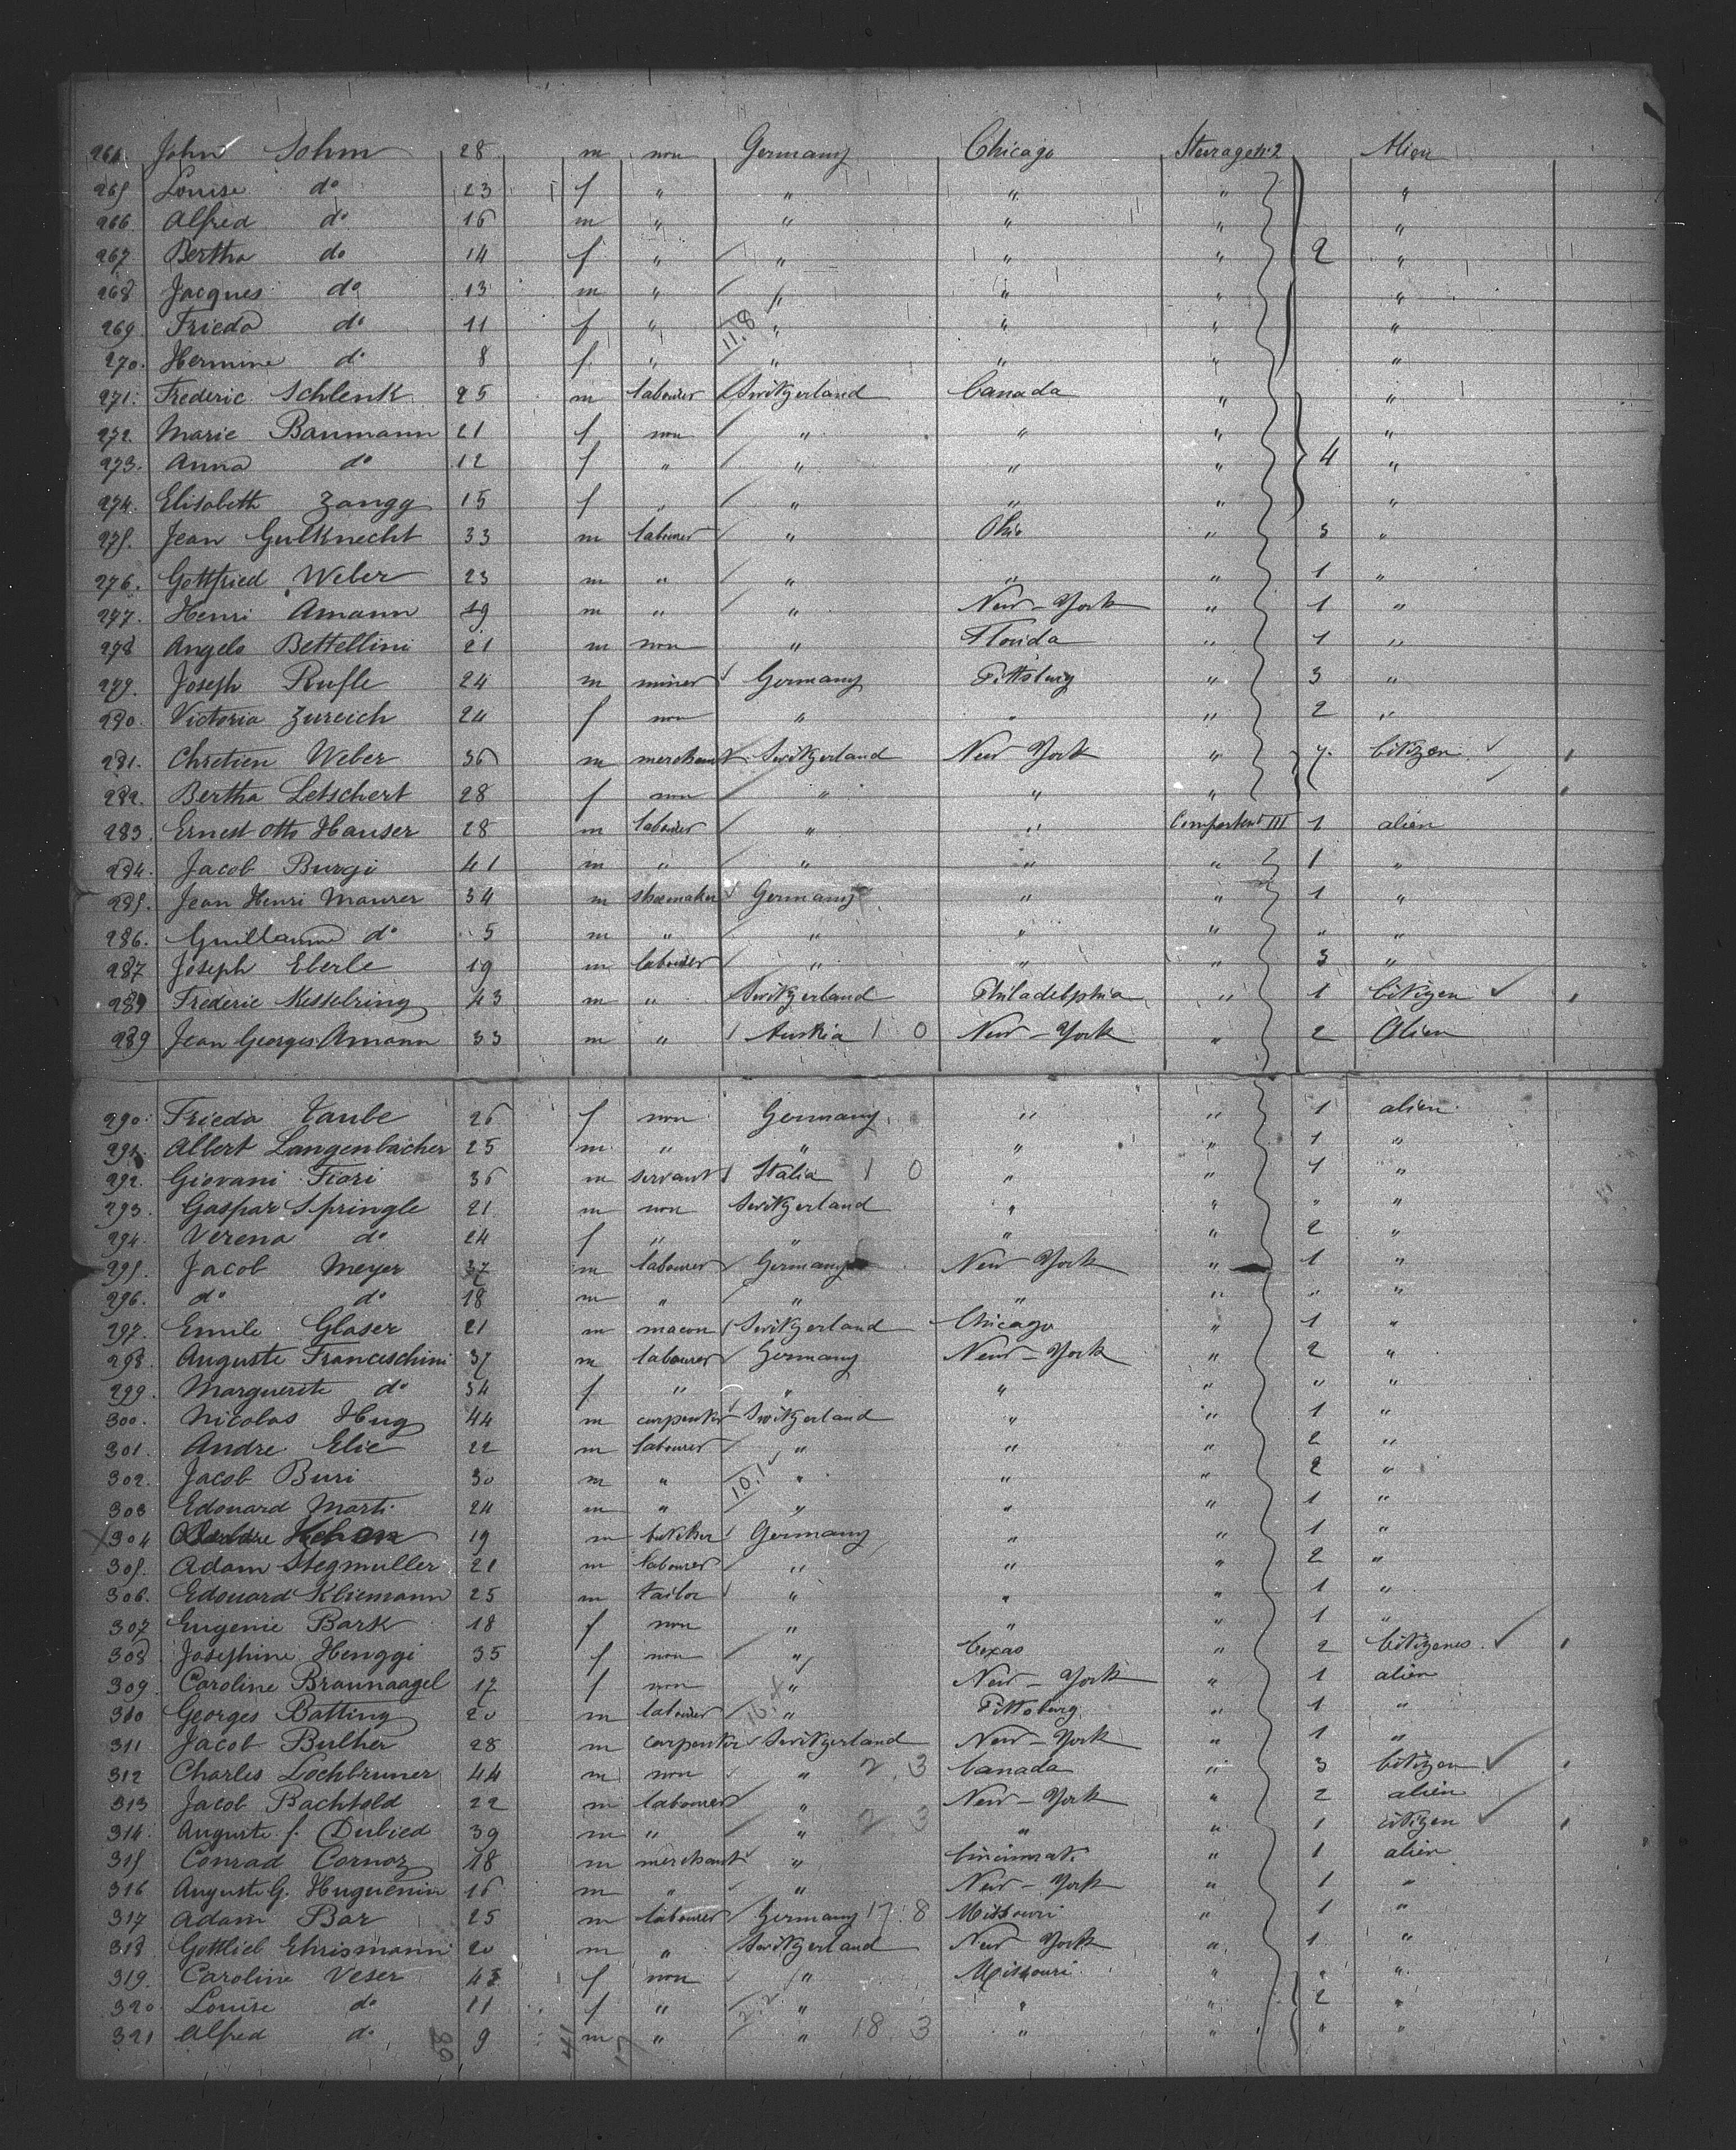 264 John Sohm 28 m non Germany Chicago Steerage n:2 Alien
265 Louise do 23 f " " " " "
266 Alfred do 16 m " " " " "
267 Bertha do 14 f " " " " 2 "
268 Jacques do 13 m " " " " "
269. Frieda do 11 f " 11.8 " " " "
270. Hermine do 8 f " " " " "
271. Frederic Schlenk 25 m labourer Switzerland Canada " "
272. Marie Baumann 21 f non " " " "
273. Anna do 12 f " " " " 4 "
274. Elisabeth Zangg 15 f " " " " "
275. Jean Gutknecht 33 m labourer " Ohio " 3 "
276. Gottfried Weber 23 m " " " " 1 "
277. Henri Amann 19 m " " New-York " 1 "
278 Angelo Bettellini 21 m non " Florida " 1 "
279. Joseph Rufle 24 m miner Germany Pittsburg " 3 "
280. Victoria Zureich 24 f non " " " 2 "
281. Chretien Weber 36 m merchant Switzerland New York " 7. Citizen
282. Bertha Letschert 28 f non " " "
283. Ernest Otto Hauser 28 m labourer " " Compartent III 1 alien
284. Jacob Burgi 41 m " " " " 1 "
285. Jean Henri Maurer 34 m shoemaker Germany " " 1 "
286. Guillaume do 5 m " " " " " "
287 Joseph Eberle 19 m labourer " " " 3 "
288 Frederic Kesselring 43 m " Switzerland Philadelphia " 1 Citizen
289 Jean Georges Amann 33 m " Austria 1 0 New-York " 2 Alien
290. Frieda Taube 26 f non Germany " " 1 alien
291. Albert Langenbacher 25 m " " " " 1 "
292. Giovani Fiori 36 m servant Italia 1 0 " " 1 "
293. Gaspar Springle 21 m non Switzerland " " " "
294. Verena do 24 f " " " " 2 "
295. Jacob Meyer 37 m labourer Germany New York " 1 "
296. do do 18 m " " " " " "
297. Emile Glaser 21 m macon Switzerland Chicago " 1 "
298. Auguste Franceschini 37 m labourer Germany New-York " 2 "
299. Marguerite do 34 f " " " " " "
300. Nicolas Hug 44 m carpenter Switzerland " " 1 "
301. Andre Elie 22 m labourer " " " 2 "
302. Jacob Buri 30 m " 10.1 " " " 2 "
303 Edouard Marti 24 m " " " " 1 "
X 304 19 m butcher Germany " " 1 "
305. Adam Stegmuller 21 m labourer " " " 2 "
306. Edouard Kliemann 25 m tailor " " " 1 "
307 Eugenie Bark 18 f non " " " 1 "
308 Josephine Henggi 35 f non " Texas " 2 Citizenes
309. Caroline Braunaagel 17 f non " New-York " 1 alien
310 Georges Batting 20 m labourer " Pittsburg " 1 "
311 Jacob Bulher 28 m carpenter Switzerland New-York " 1 "
312 Charles Lochbruner 44 m non " 2 3 Canada " 3 Citizen
313 Jacob Bachtold 22 m labourer " New-York " 2 alien
314. Auguste f. Dubied 39 m " " 2 3 " " 1 citizen
315 Conrad Cornoz 18 m merchant " Cincinnati " 1 alien
316 Auguste G. Huguenin 16 m " " New-York " 1 "
317 Adam Bar 25 m labourer Germany 17 8 Missouri " 1 "
318 Gottlieb Ehrismann 20 m " Switzerland New York " 1 "
319. Caroline Veser 45 f non " Missouri " " "
320. Louise do 11 f " 2.2 " " " 2 "
321 Alfred do 9 m " " 18 3 " " " "